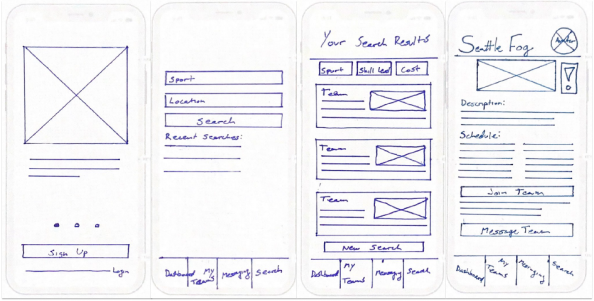 Sign Up
Login
Sport
Location
Search
Recent Searches:
Dashboard
My Teams
Messaging
Search
Your Search Results
Sport
Skill Level
Cost
Team
Team
Team
New Search
Dashboard
My Teams
Messaging
Search
Seattle Fog
Description:
Schedule:
Join Team
Message Team
Dashboard
My Teams
Messaging
Search